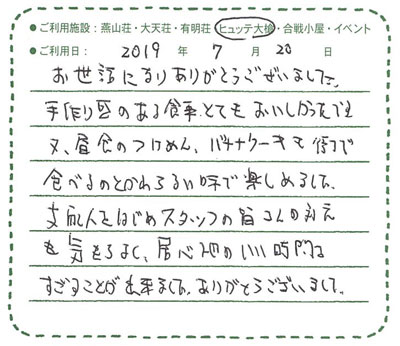 ●ご利用施設：燕山荘・大天荘・有明荘・ヒュッテ大槍・合戦小屋・イベント
●ご利用日： 2019 年 7 月 20 日
お世話になりありがとうございました。
手作り感のある食事とてもおいしかったです
又、昼食のつけめん、バナナケーキも 下で
食べるのとかわらない味で楽しめました。
支配人をはじめスタッフの皆さんの対応
も気もちよく、居心地のいい時間を
すごすことが出来ました。ありがとうございました。